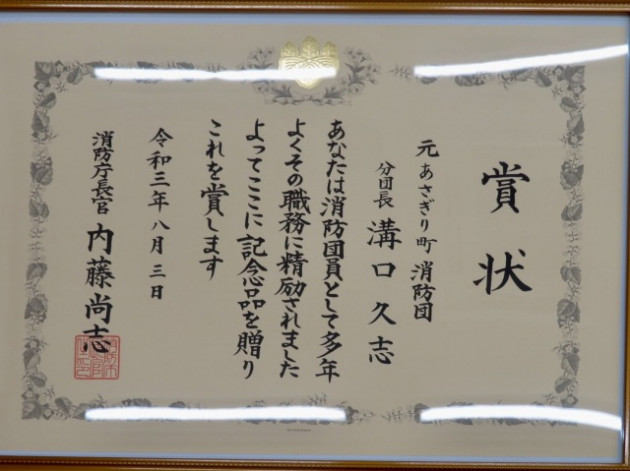 賞状
元 あさぎり町 消防団
分団長 溝口久志
あなたは消防団員として多年
よくその職務に精励されました
よってここに記念品を贈り
これを賞します
令和三年八月三日
消防庁長官 内藤尚志